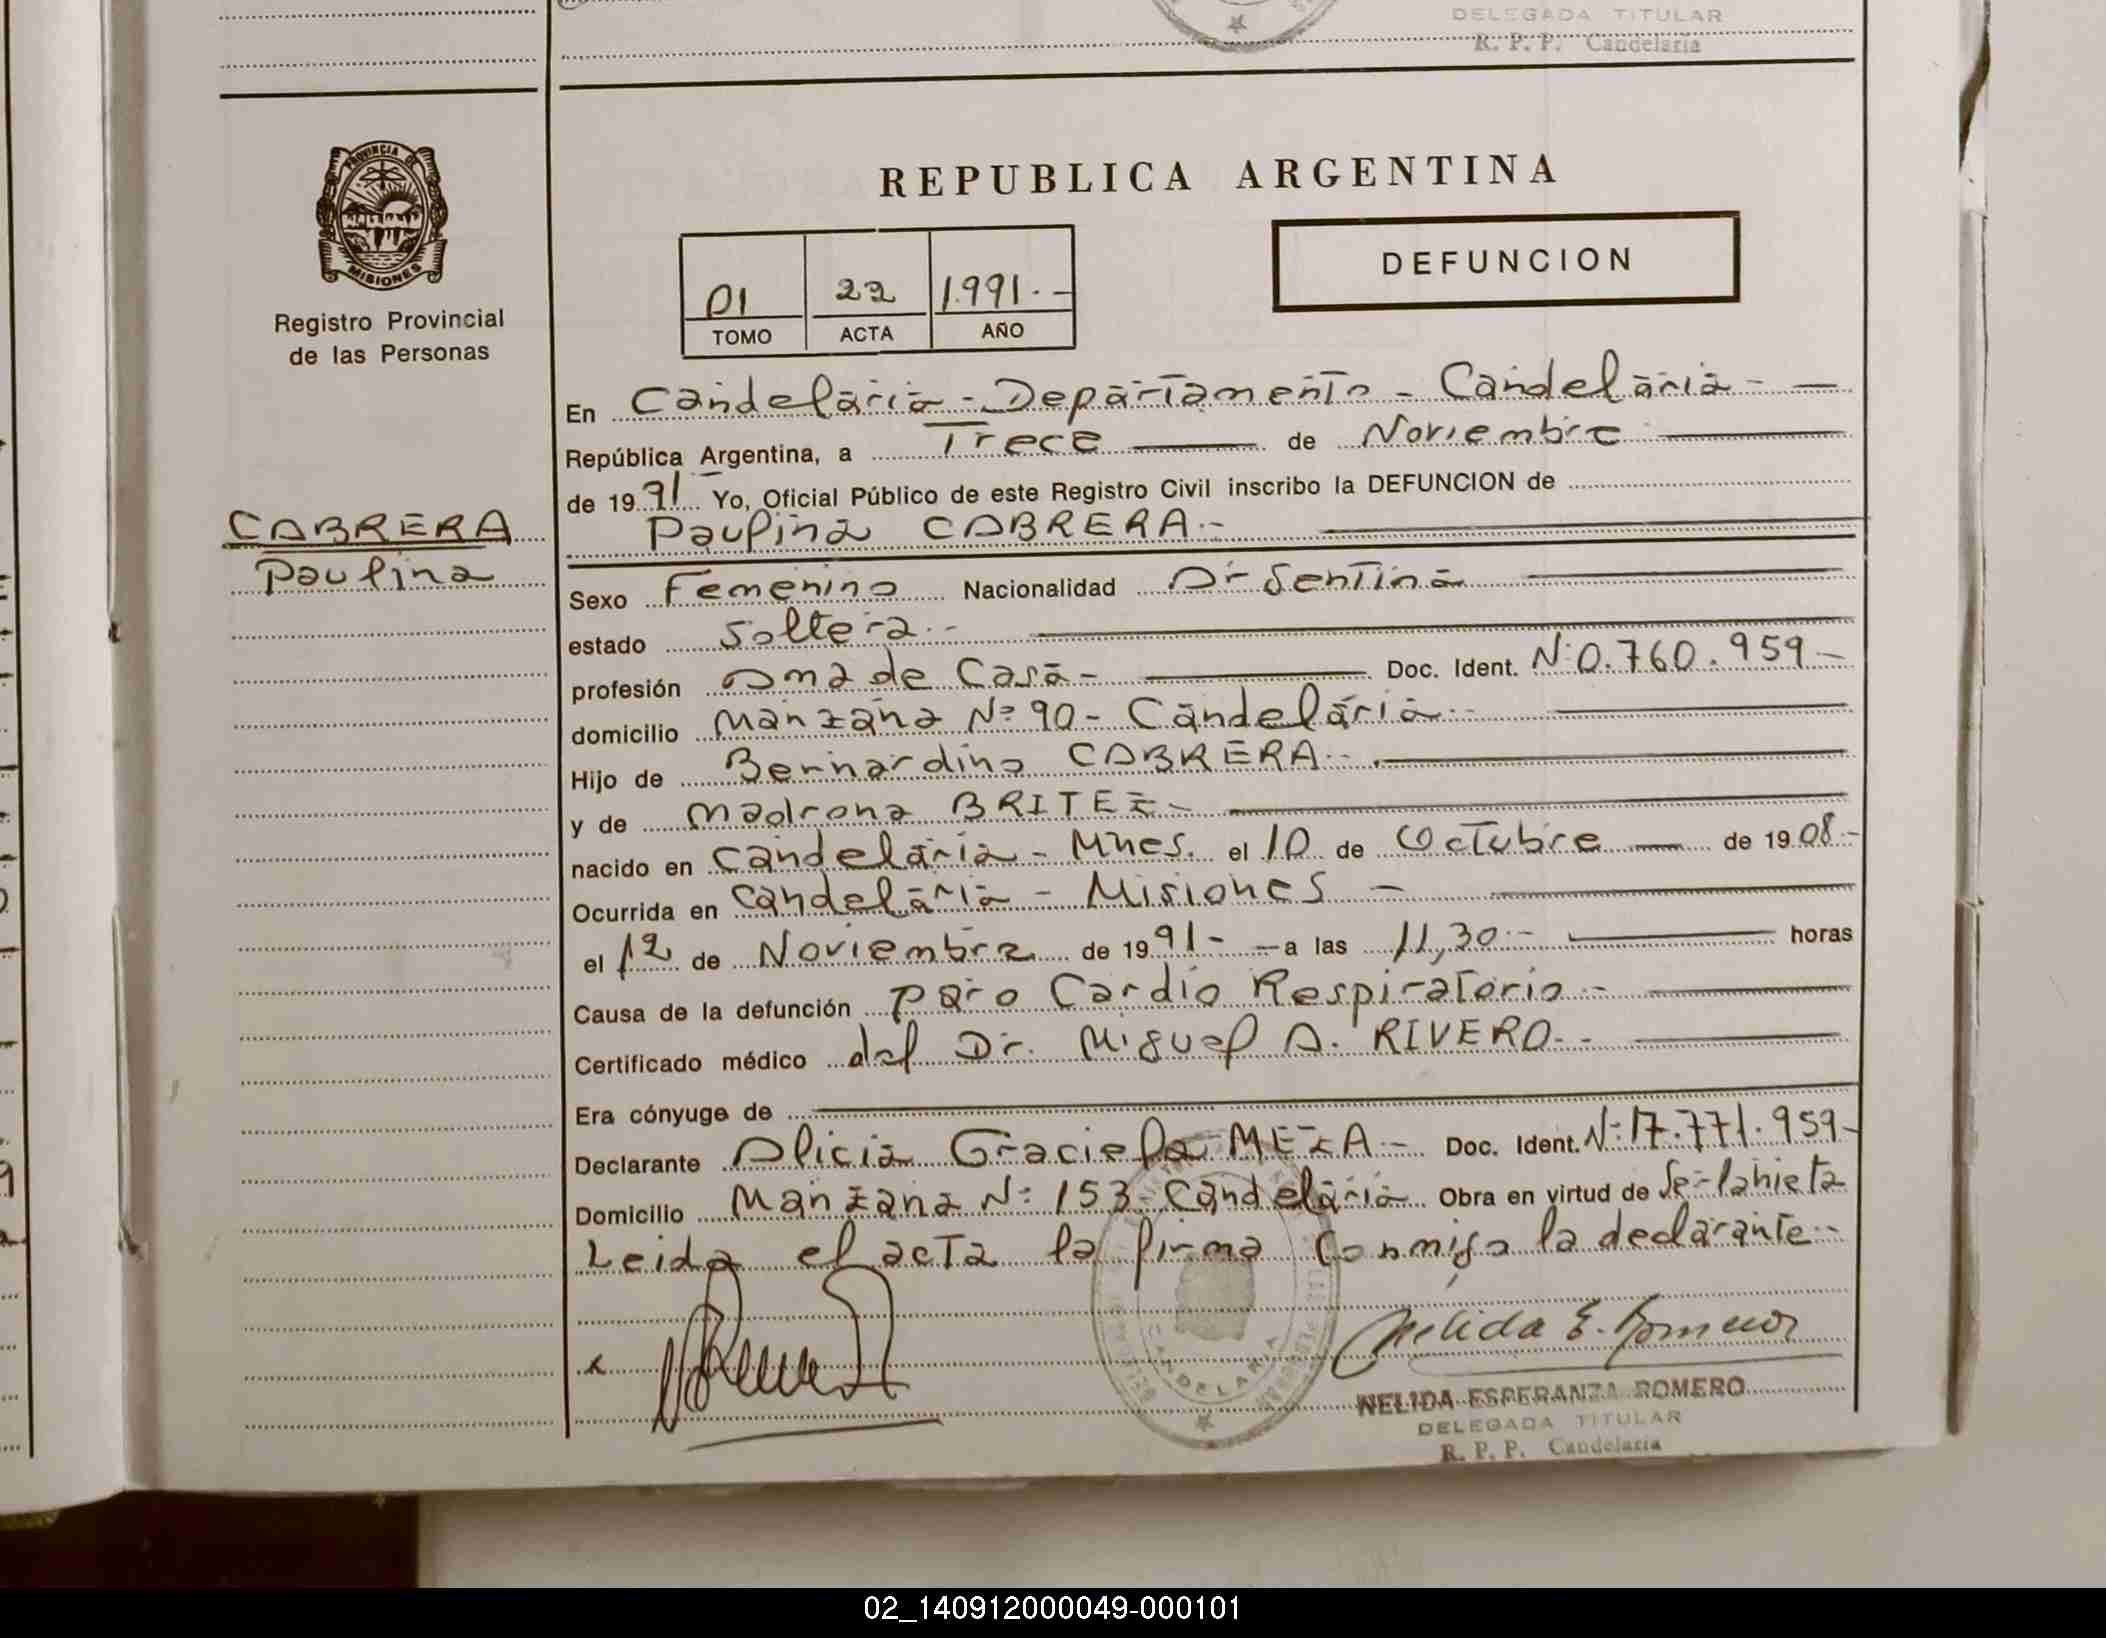 DELEGADA TITULAR
R. P. P. Candelaria
PROVINCIA DE
MISIONES
Registro Provincial
de las Personas
CABRERA
Paulina
REPUBLICA ARGENTINA
01 22 1.991.-
TOMO ACTA AÑO
DEFUNCION
En Candelaria - Departamento - Candelaria - —
República Argentina, a Trece — de Noviembre —
de 19 91 Yo, Oficial Público de este Registro Civil inscribo la DEFUNCION de
Paulina CABRERA.-
Sexo Femenino Nacionalidad Argentina
estado Soltera.-
profesión Ama de Casa - Doc. Ident. Nº 0.760.959-
domicilio Manzana Nº 90 - Candelaria.-
Hijo de Bernardino CABRERA.-
y de Madrona BRITEZ-
nacido en Candelaria - Mnes. el 10 de Octubre — de 19 08.-
Ocurrida en Candelaria - Misiones -
el 12 de Noviembre de 19 91- - a las 11,30.- horas
Causa de la defunción Paro Cardio Respiratorio.-
Certificado médico del Dr. Miguel A. RIVERO.-
Era cónyuge de
Declarante Alicia Graciela MEZA.- Doc. Ident. Nº 17.771.959-
Domicilio Manzana Nº 153- Candelaria Obra en virtud de Ser la nieta
Leida el acta la firma conmigo la declarante.-
x
CANDELARIA
Nelida E. Romero
NELIDA ESPERANZA ROMERO
DELEGADA TITULAR
R. P. P. Candelaria
02_140912000049-000101